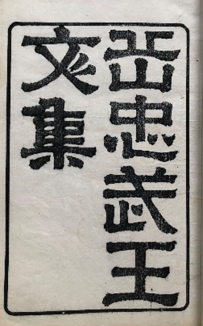 岳忠武王
文集